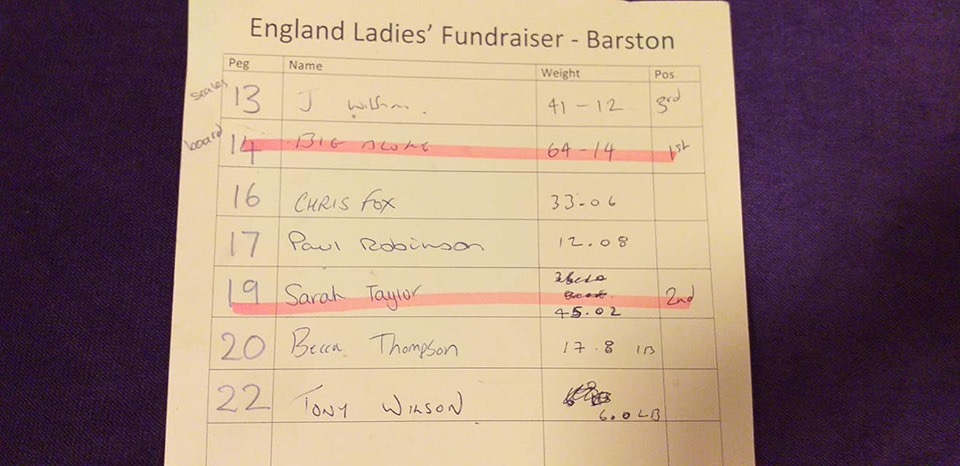 England Ladies' Fundraiser - Barston
Peg Name Weight Pos
scales 13 J 41-12 3rd
board 14 BIG 64-14 1st
16 CHRIS FOX 33-06
17 Paul Robinson 12.08
19 Sarah Taylor 45.02 2nd
20 Becca Thompson 17.8 lB
22 TONY WILSON 6.0 LB